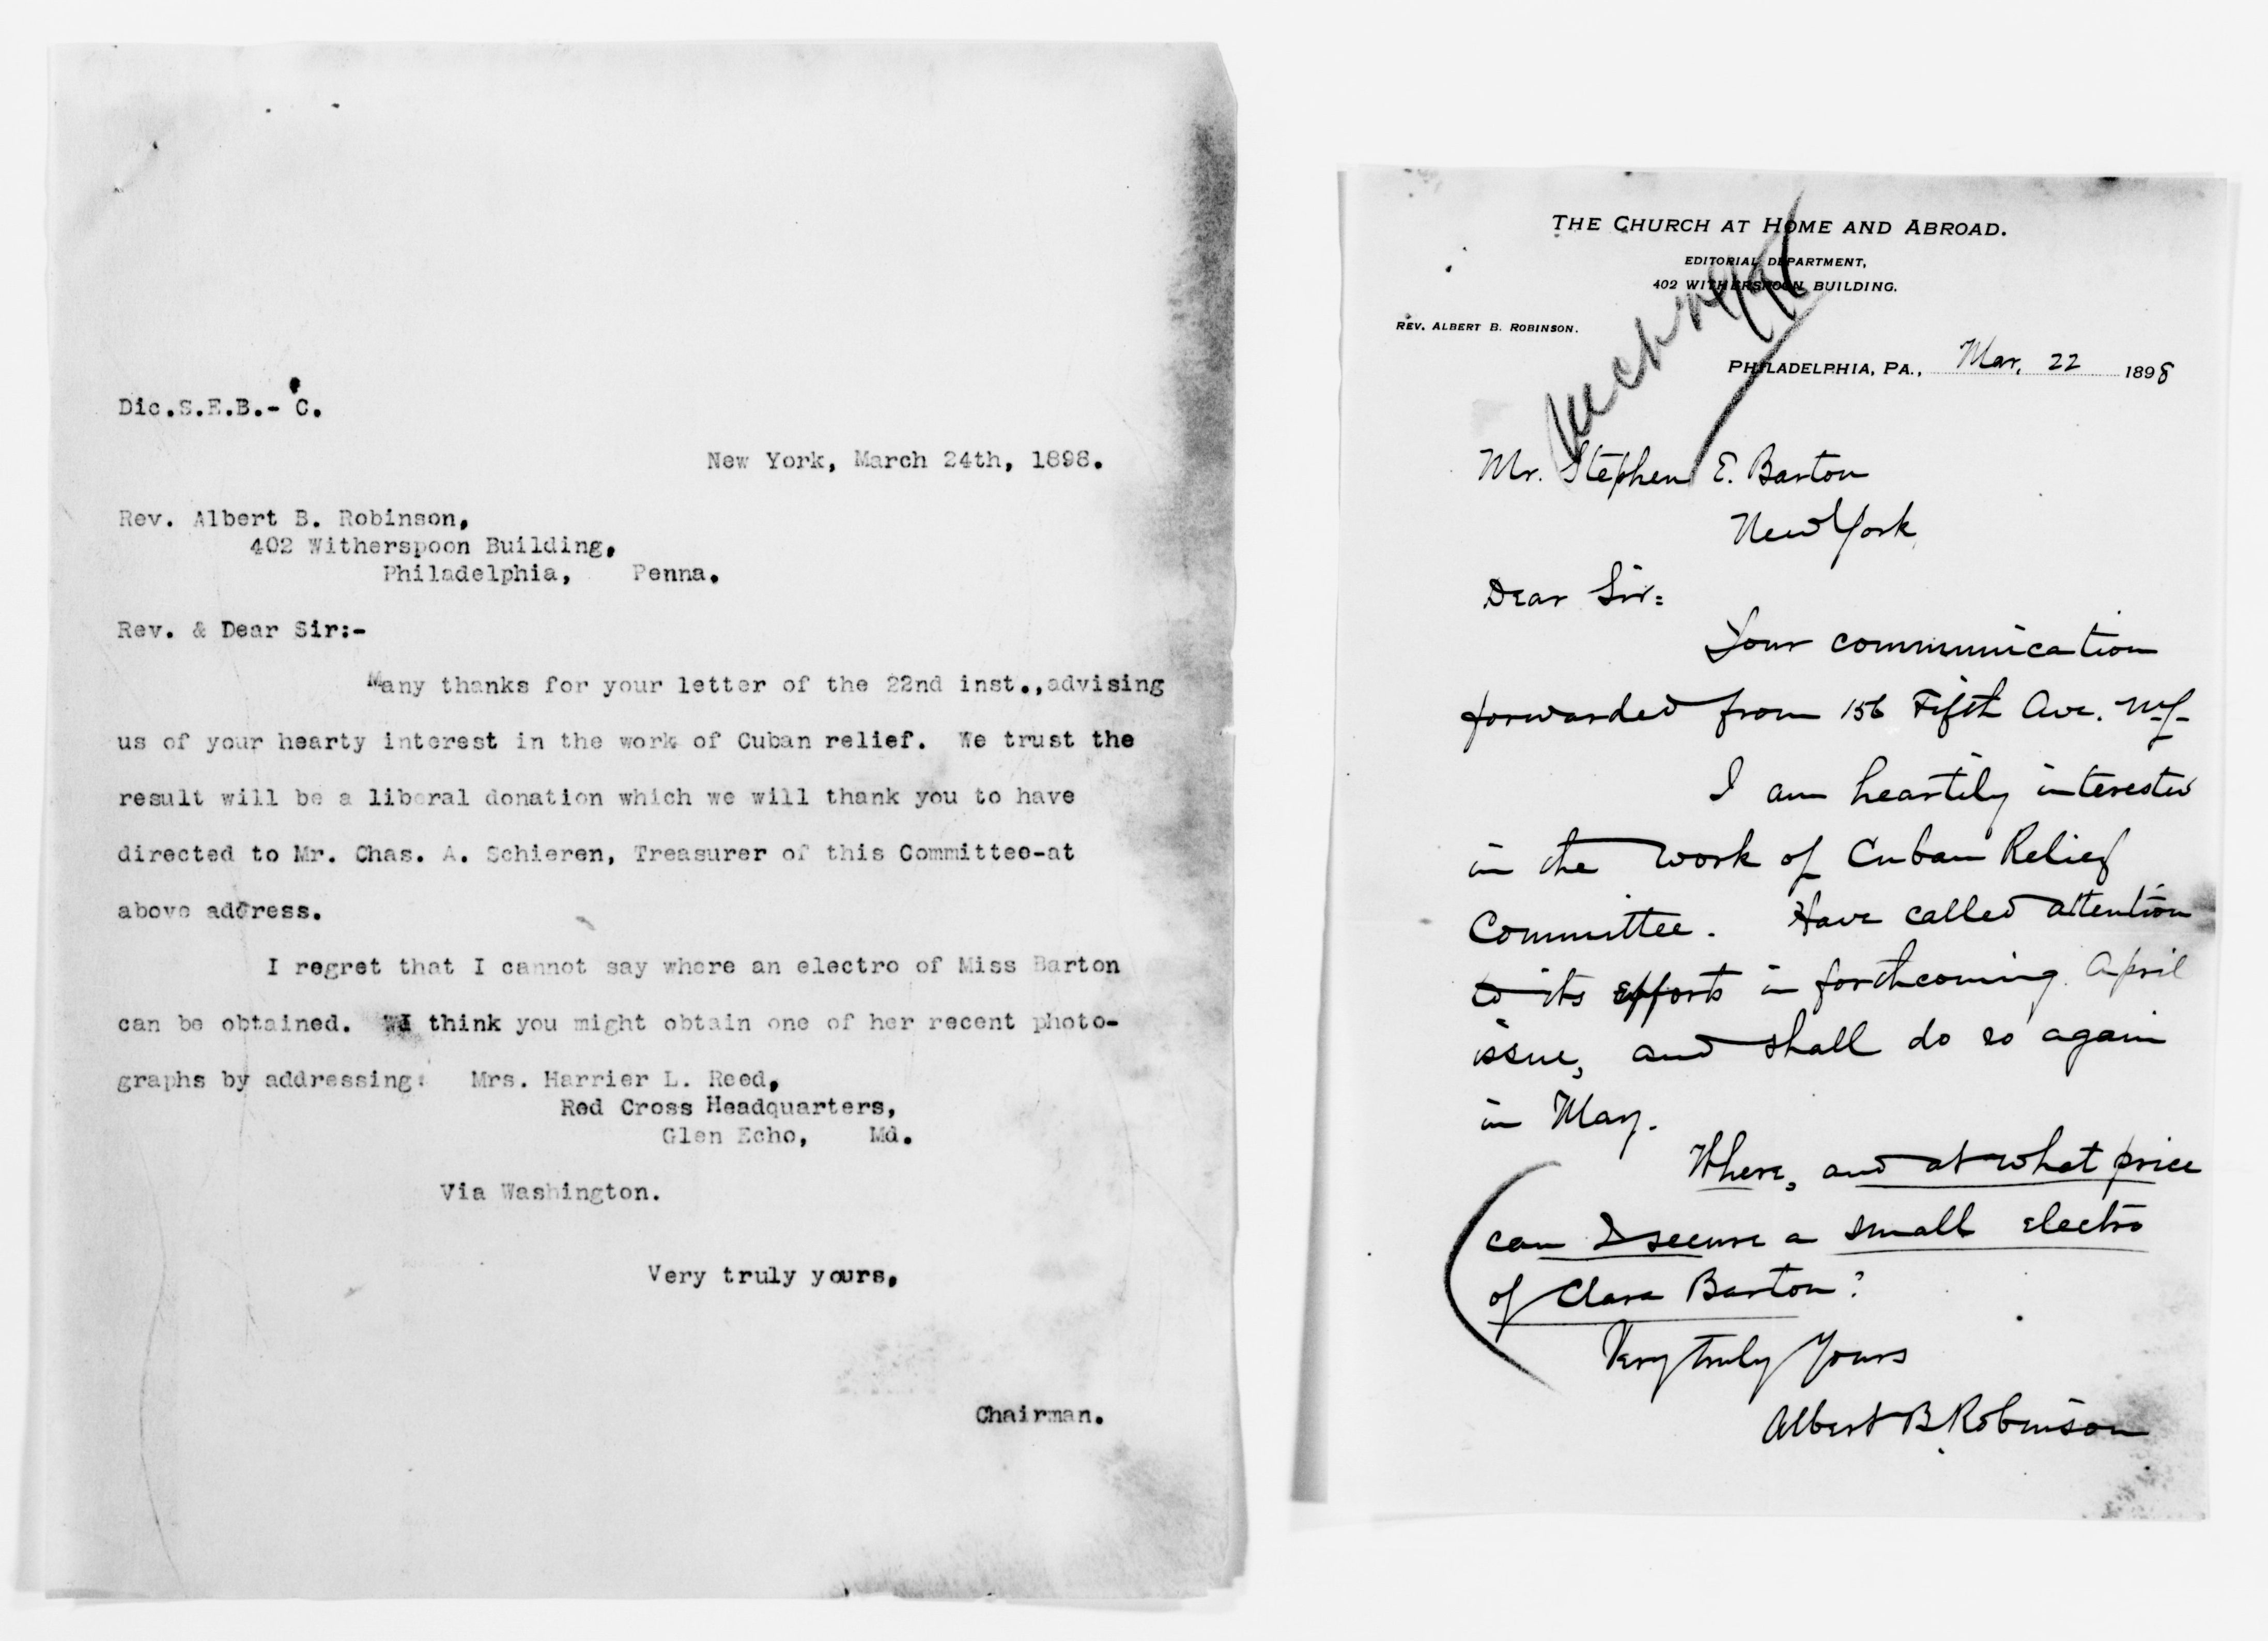 Dic.S.E.B.- C.
New York, March 24th, 1898.
Rev. Albert B. Robinson,
402 Witherspoon Building,
Philadelphia, Penna.
Rev. & Dear Sir:-
Many thanks for your letter of the 22nd inst.,advising
us of your hearty interest in the work of Cuban relief. We trust the
result will be a liberal donation which we will thank you to have
directed to Mr. Chas. A. Schieren, Treasurer of this Committee-at
above address.
I regret that I cannot say where an electro of Miss Barton
can be obtained. I think you might obtain one of her recent photo-
graphs by addressing: Mrs. Harrier L. Reed,
Red Cross Headquarters,
Glen Echo, Md.
Via Washington.
Very truly yours,
Chairman.
THE CHURCH AT HOME AND ABROAD.
EDITORIAL DEPARTMENT,
402 WITHERSPOON BUILDING.
REV. ALBERT B. ROBINSON.
PHILADELPHIA, PA., Mar. 22 1898
Mr. Stephen E. Barton
New York
Dear Sir:
Your communication
forwarded from 156 Fifth Ave. N.Y.
I am heartily interested
in the work of Cuban Relief
Committee. Have called attention
to its efforts in forthcoming April
issue, and shall do so again
in May.
Where, and at what price
can I secure a small electro
of Clara Barton?
Very truly Yours
Albert B. Robinson